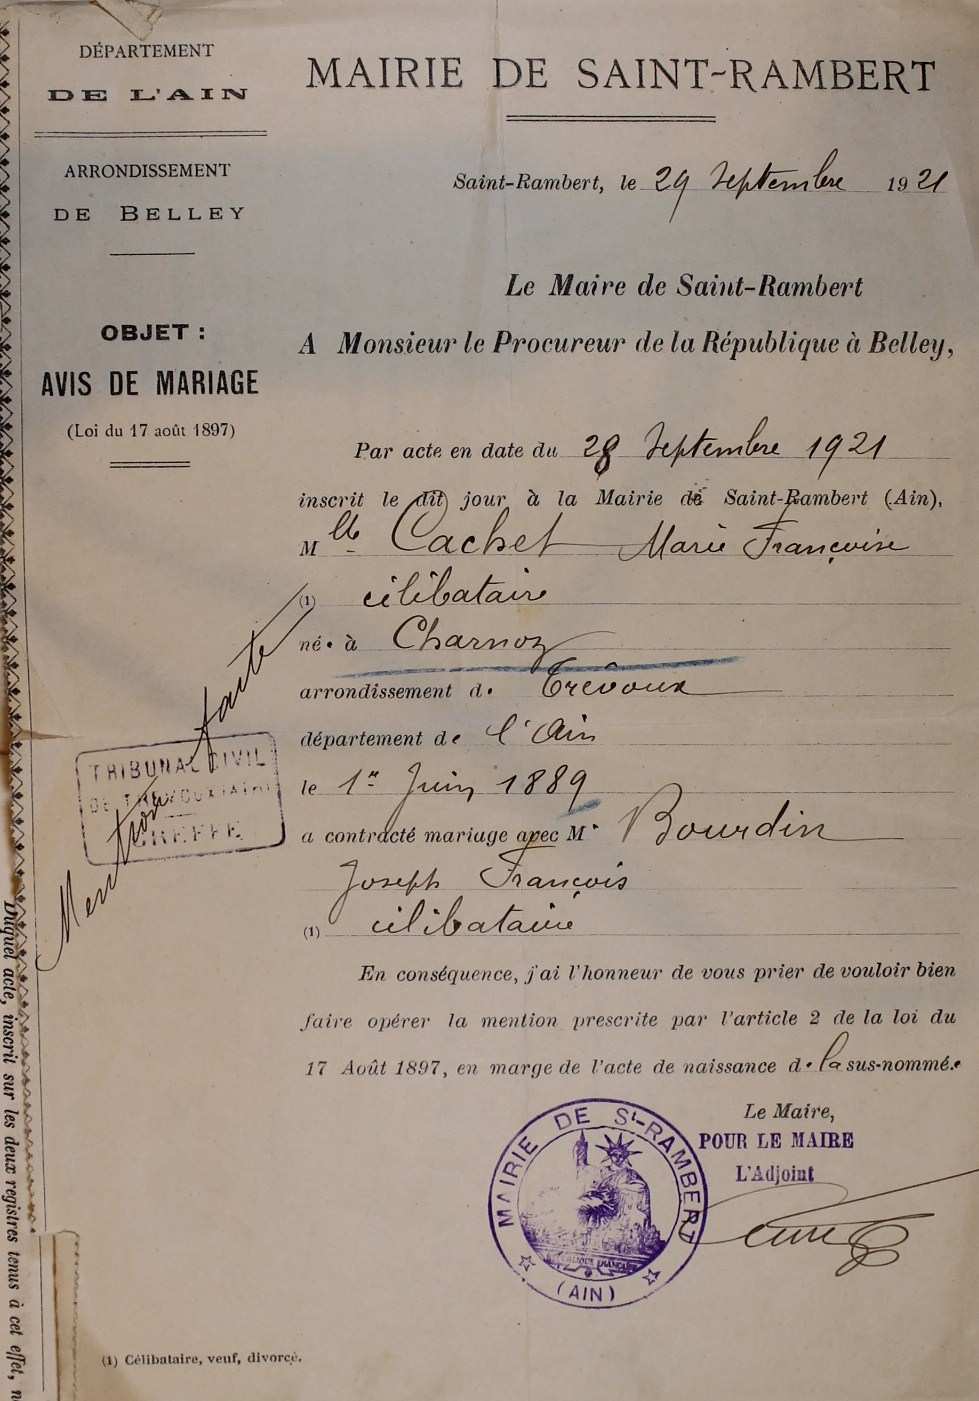 DÉPARTEMENT
DE L'AIN
ARRONDISSEMENT
DE BELLEY
OBJET :
AVIS DE MARIAGE
(Loi du 17 août 1897)
MAIRIE DE SAINT-RAMBERT
Saint-Rambert, le 29 Septembre 1921
Le Maire de Saint-Rambert
A Monsieur le Procureur de la République à Belley,
Par acte en date du 28 Septembre 1921
inscrit le dit jour à la Mairie de Saint-Rambert (Ain),
Mlle Cachet Marie Françoise
(1) célibataire
née à Charnoz
arrondissement de Trévoux
département de l'Ain
le 1er Juin 1889
a contracté mariage avec Mr Bourdin
Joseph François
(1) célibataire
En conséquence, j'ai l'honneur de vous prier de vouloir bien
faire opérer la mention prescrite par l'article 2 de la loi du
17 Août 1897, en marge de l'acte de naissance de la sus-nommée
Le Maire,
POUR LE MAIRE
L'Adjoint
MAIRIE DE St-RAMBERT
(AIN)
Mention faite
TRIBUNAL CIVIL
DE TREVOUX (AIN)
GREFFE
(1) Célibataire, veuf, divorcé.
Duquel acte, inscrit sur les deux registres tenus à cet effet,